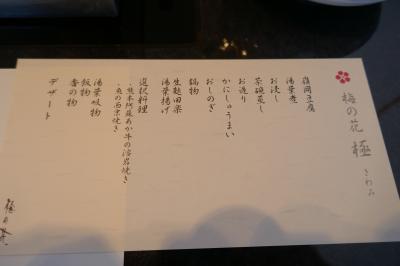 梅の花 極
きわみ
嶺岡豆腐
湯葉煮
お浸し
茶碗蒸し
お造り
かにしゅうまい
おしのぎ
鍋物
生麩田楽
湯葉揚げ
選択料理
・熊本阿蘇あか牛の溶岩焼き
・魚の西京焼き
湯葉吸物
飯物
香の物
デザート